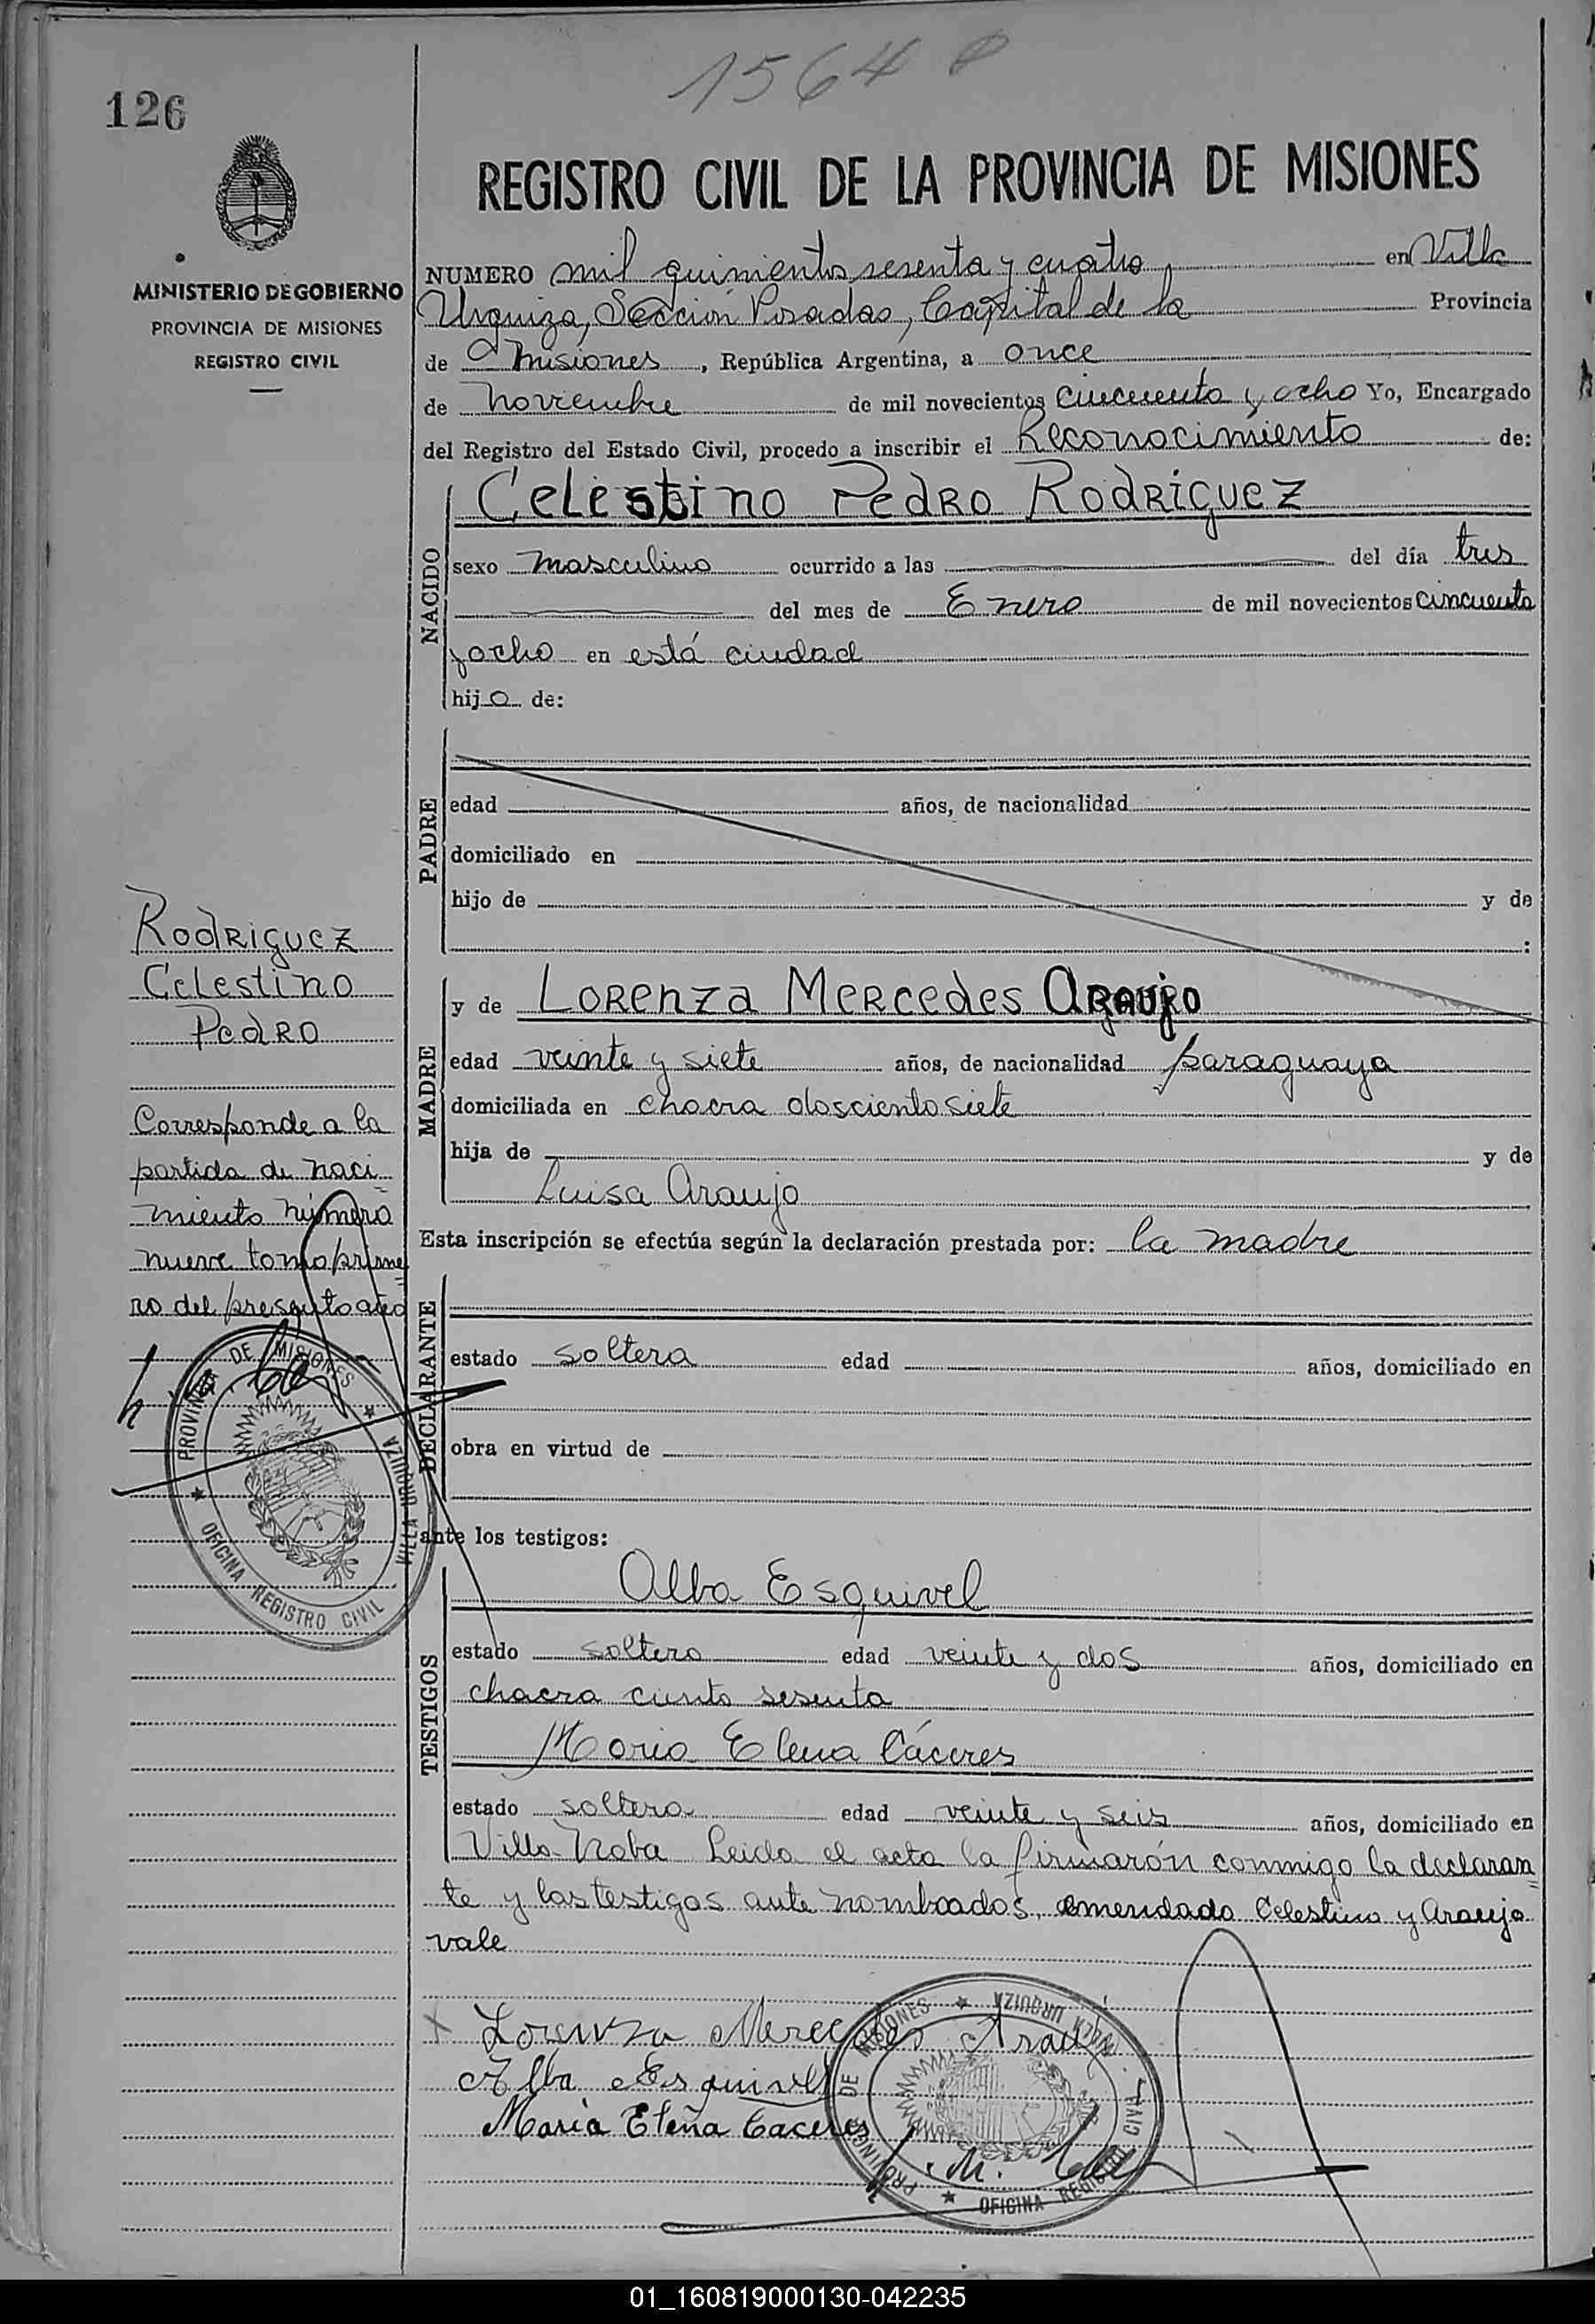 1564
126
REGISTRO CIVIL DE LA PROVINCIA DE MISIONES
MINISTERIO DE GOBIERNO
PROVINCIA DE MISIONES
REGISTRO CIVIL
NUMERO mil quinientos sesenta y cuatro en Villa
Urquiza, Sección Posadas, Capital de la Provincia
de Misiones, República Argentina, a once
de Noviembre de mil novecientos cincuenta y ocho Yo, Encargado
del Registro del Estado Civil, procedo a inscribir el Reconocimiento de:
NACIDO
Celestino Pedro Rodriguez
sexo masculino ocurrido a las del día tres
del mes de Enero de mil novecientos cincuenta
y ocho en está ciudad
hijo de:
PADRE
edad años, de nacionalidad
domiciliado en
hijo de y de
:
MADRE
y de Lorenza Mercedes Araujo
edad veinte y siete años, de nacionalidad paraguaya
domiciliada en chacra dosciento siete
hija de y de
Luisa Araujo
Esta inscripción se efectúa según la declaración prestada por: la madre
DECLARANTE
estado soltera edad años, domiciliado en
obra en virtud de
ante los testigos:
TESTIGOS
Alba Esquivel
estado soltera edad veinte y dos años, domiciliado en
chacra ciento sesenta
Maria Elena Cáceres
estado soltera edad veinte y seis años, domiciliado en
Villa Leida el acta la firmarón conmigo la declaran
te y las testigos ante nombrados, emendado Celestino y Araujo
vale
Lorenza Mercedes Arauj
Alba Esquivel
Maria Elena Caceres
PROVINCIA DE MISIONES ★ VILLA URQUIZA
★ OFICINA REGISTRO CIVIL
Rodriguez
Celestino
Pedro
Corresponde a la
partida de naci
miento número
nueve tomo prime
ro del presente año
PROVINCIA DE MISIONES ★ VILLA URQUIZA
★ OFICINA REGISTRO CIVIL
01_160819000130-042235